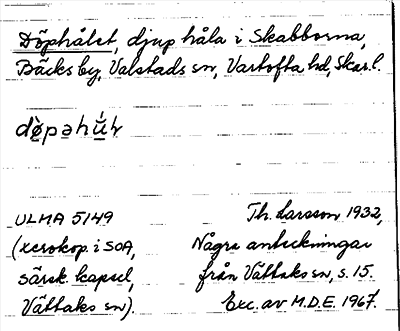 Döphålet, djup håla i Skabborna,
Bäcks by, Valstads sn, Vartofta hd, Skar.l.
ULMA 5149
(xerokop. i SOA,
särsk. kapsel,
Vättaks sn).
Th. Larsson 1932,
Några anteckningar
från Vättaks sn, s. 15.
Exc. av M.D.E. 1967.